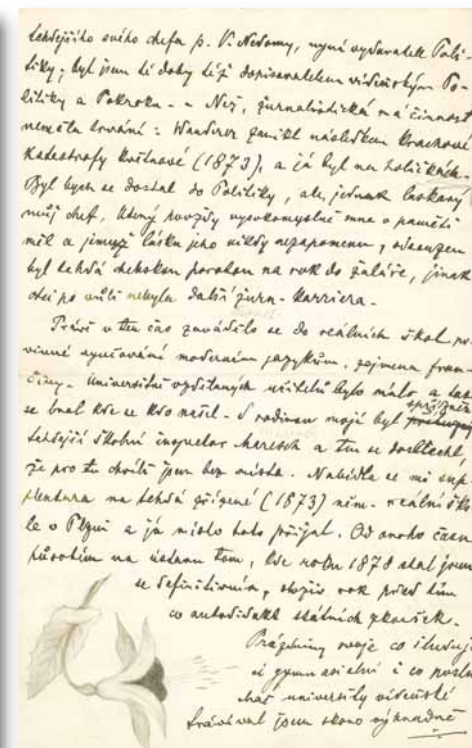 tehdejšího svého chefa p. V. Nedomy, nyní vydavatele Poli-
tiky; byl jsem té doby též dopisovatelem vídeňským Po-
litiky a Pokroku. – Než, žurnalistická má činnost
neměla trvání: Wanderer zanikl následkem krachové
katastrofy květnové (1873), a já byl na holičkách.
Byl bych se dostal do Politiky, ale jednak laskavý
můj chef, který povždy vysokomyslně mne v paměti
měl a jemuž lásku jeho nikdy nezapomenu, odsouzen
byl tehdá porotou na rok do žaláře, jinak
otci po vůli nebyla další žurn. karriera.
Právě v ten čas zavádělo se do reálních škol po-
vinné vyučování moderním jazykům, zejména fran-
činy. Universitně vzdělaných učitelů bylo málo a tak
se bral kde se kdo našel. S rodinou mojí byl spřízněn
tehdejší školní inspector Maresch a ten se doslechl,
že pro tu chvíli jsem bez místa. Nabídla se mi sup-
plentura na tehdá zřízené (1873) něm. reální ško-
le v Plzni a já místo toto přijal. Od onoho času
působím na ústavu tom, kde roku 1878 stal jsem
se definitivním, složiv rok před tím
co autodidakt státních zkoušek.
Prázdniny svoje co studující
již gymnasielní i co poslu-
chač university vídeňské
trávíval jsem skoro výhradně